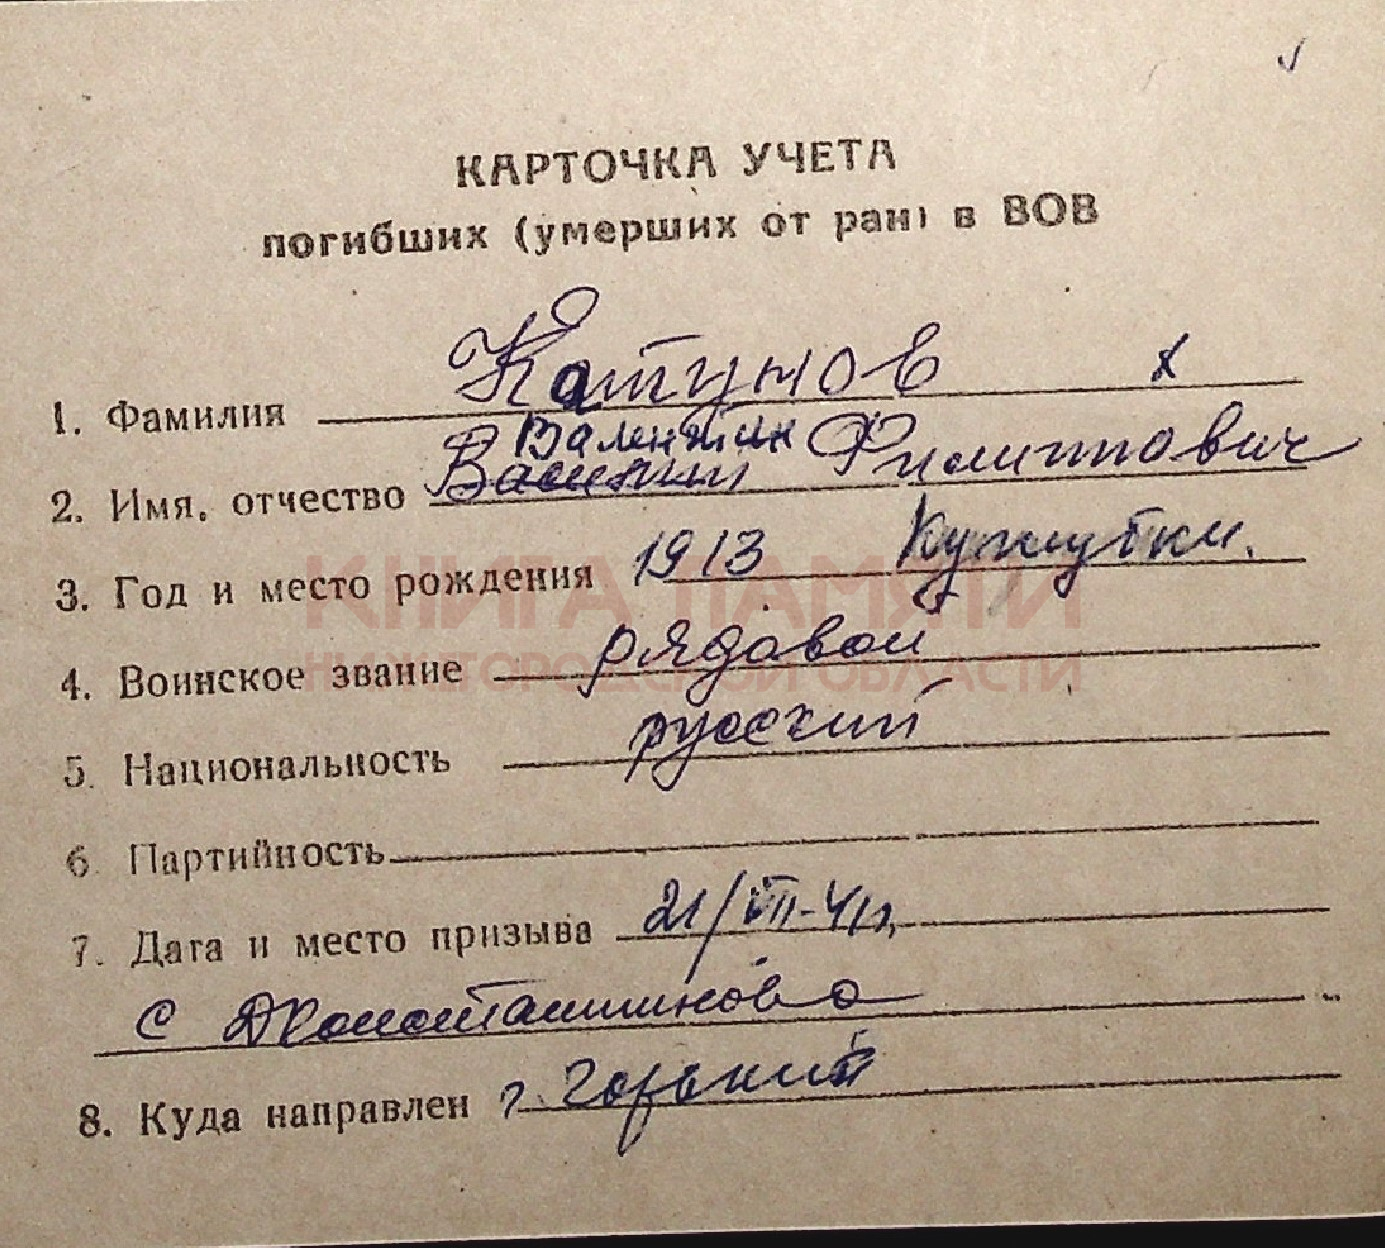 КАРТОЧКА УЧЕТА
погибших (умерших от ран) в ВОВ
1. Фамилия Катунов х
Валентин
2. Имя, отчество Василий Филиппович
3. Год и место рождения 1913 Кужутки.
КНИГА ПАМЯТИ
4. Воинское звание рядовой
НИЖЕГОРОДСКОЙ ОБЛАСТИ
5. Национальность русский
6. Партийность
7. Дата и место призыва 21/VII-41г.
с Д Константиново
8. Куда направлен г. Горький